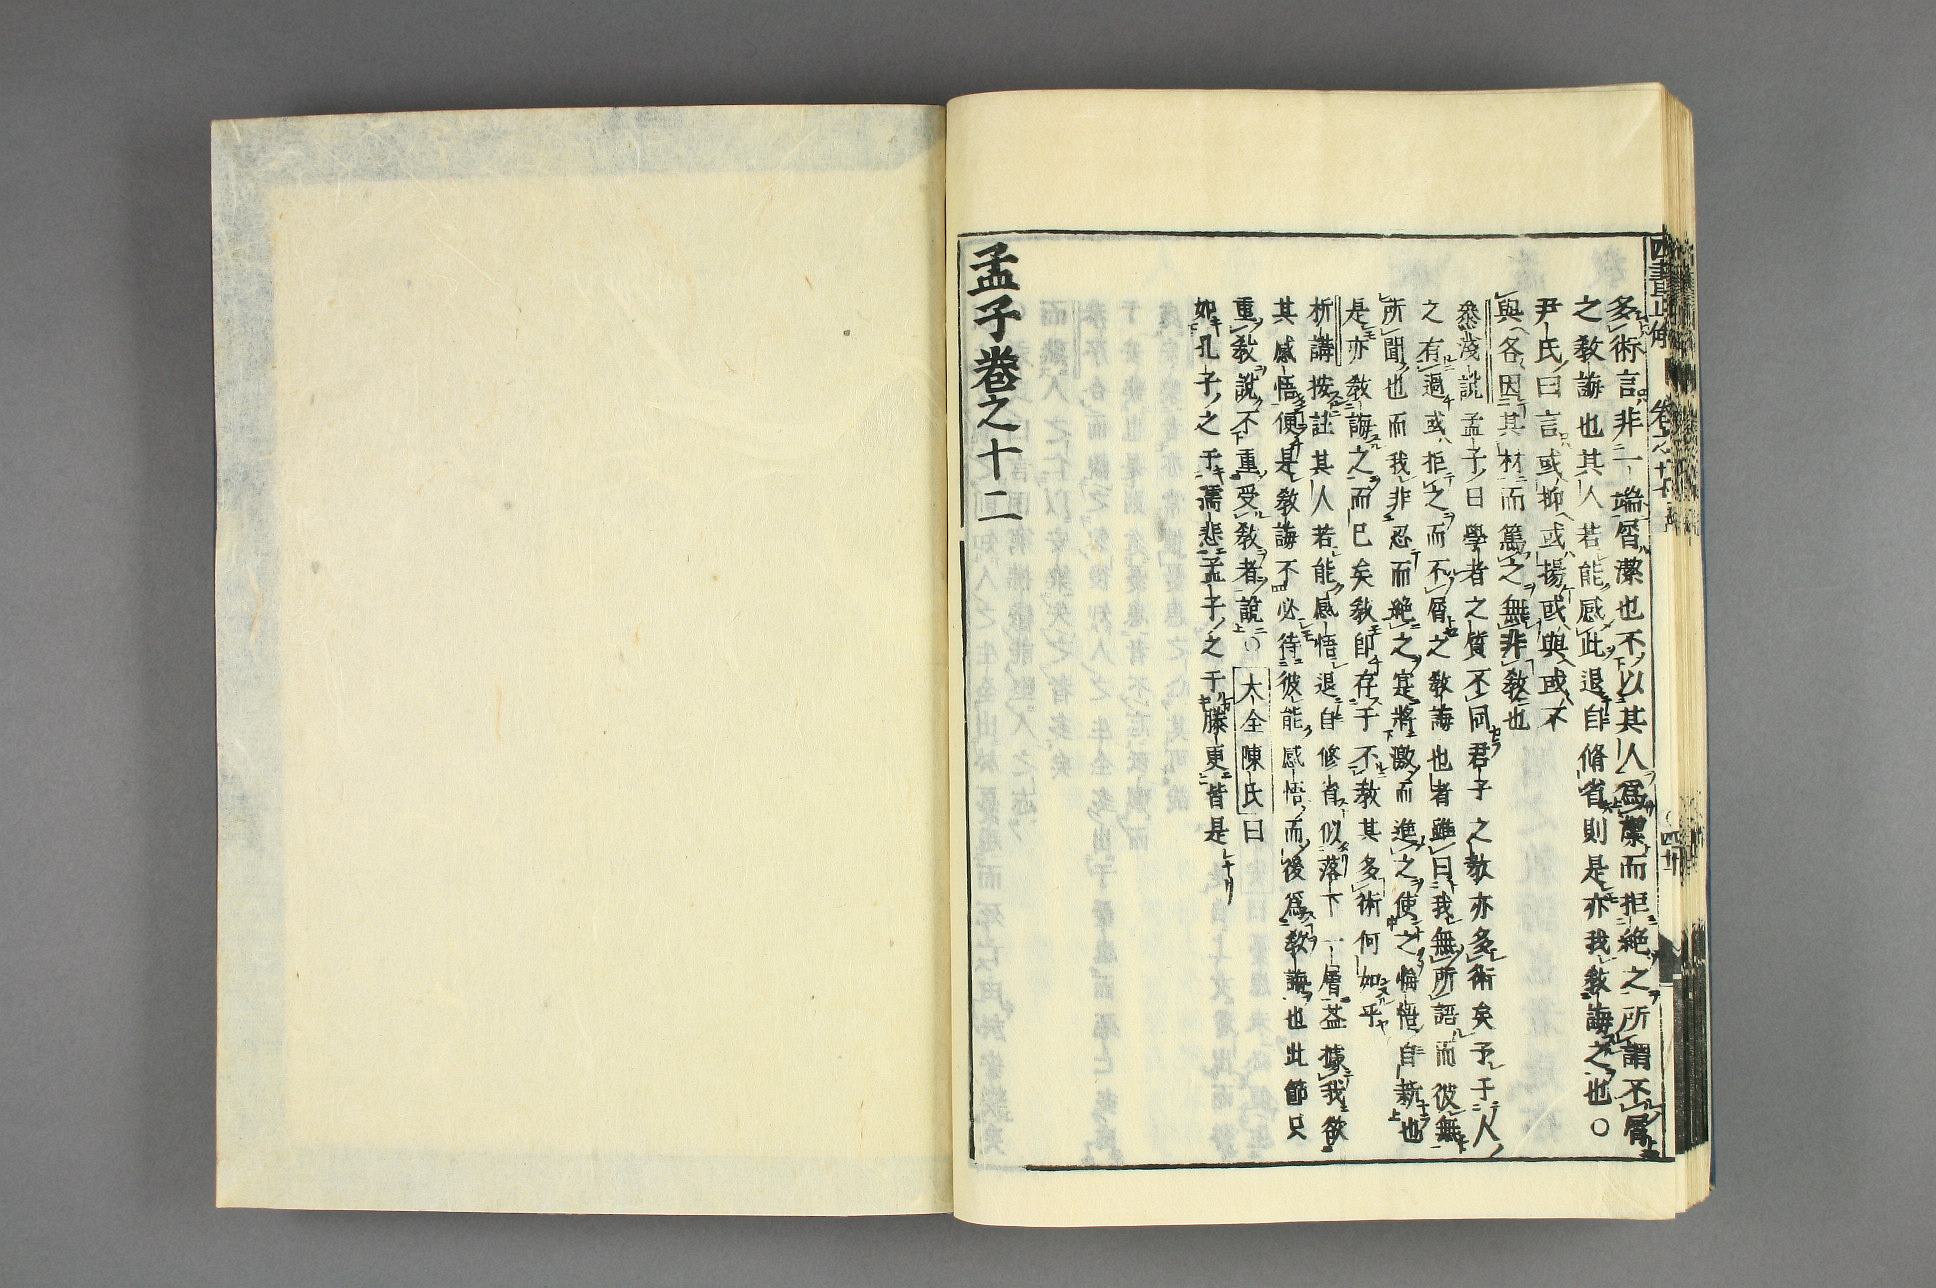 多術言非一端屑潔也不以其人爲潔而拒絶之所謂不屑
之敎誨也其人若能感此退自脩省則是亦我敎誨之也○
尹氏曰言或抑或揚或與或不
與各因其材而篤之無非敎也
淺說孟子曰學者之質不同君子之敎亦多術矣予于人
之有過或拒之而不屑之敎誨也者雖曰我無所語而彼無
所聞也而我非忍而絶之寔將激而進之使之悔悟自新也
是亦敎誨之而已矣敎卽存于不敎其多術何如乎
析講按註其人若能感悟退自修省似落下一層葢據我欲
其感悟便是敎誨不必待彼能感悟而後爲敎誨也此節只
重敎說不重受敎者說○大全陳氏曰
如孔子之于孺悲孟子之于滕更皆是
孟子卷之十二